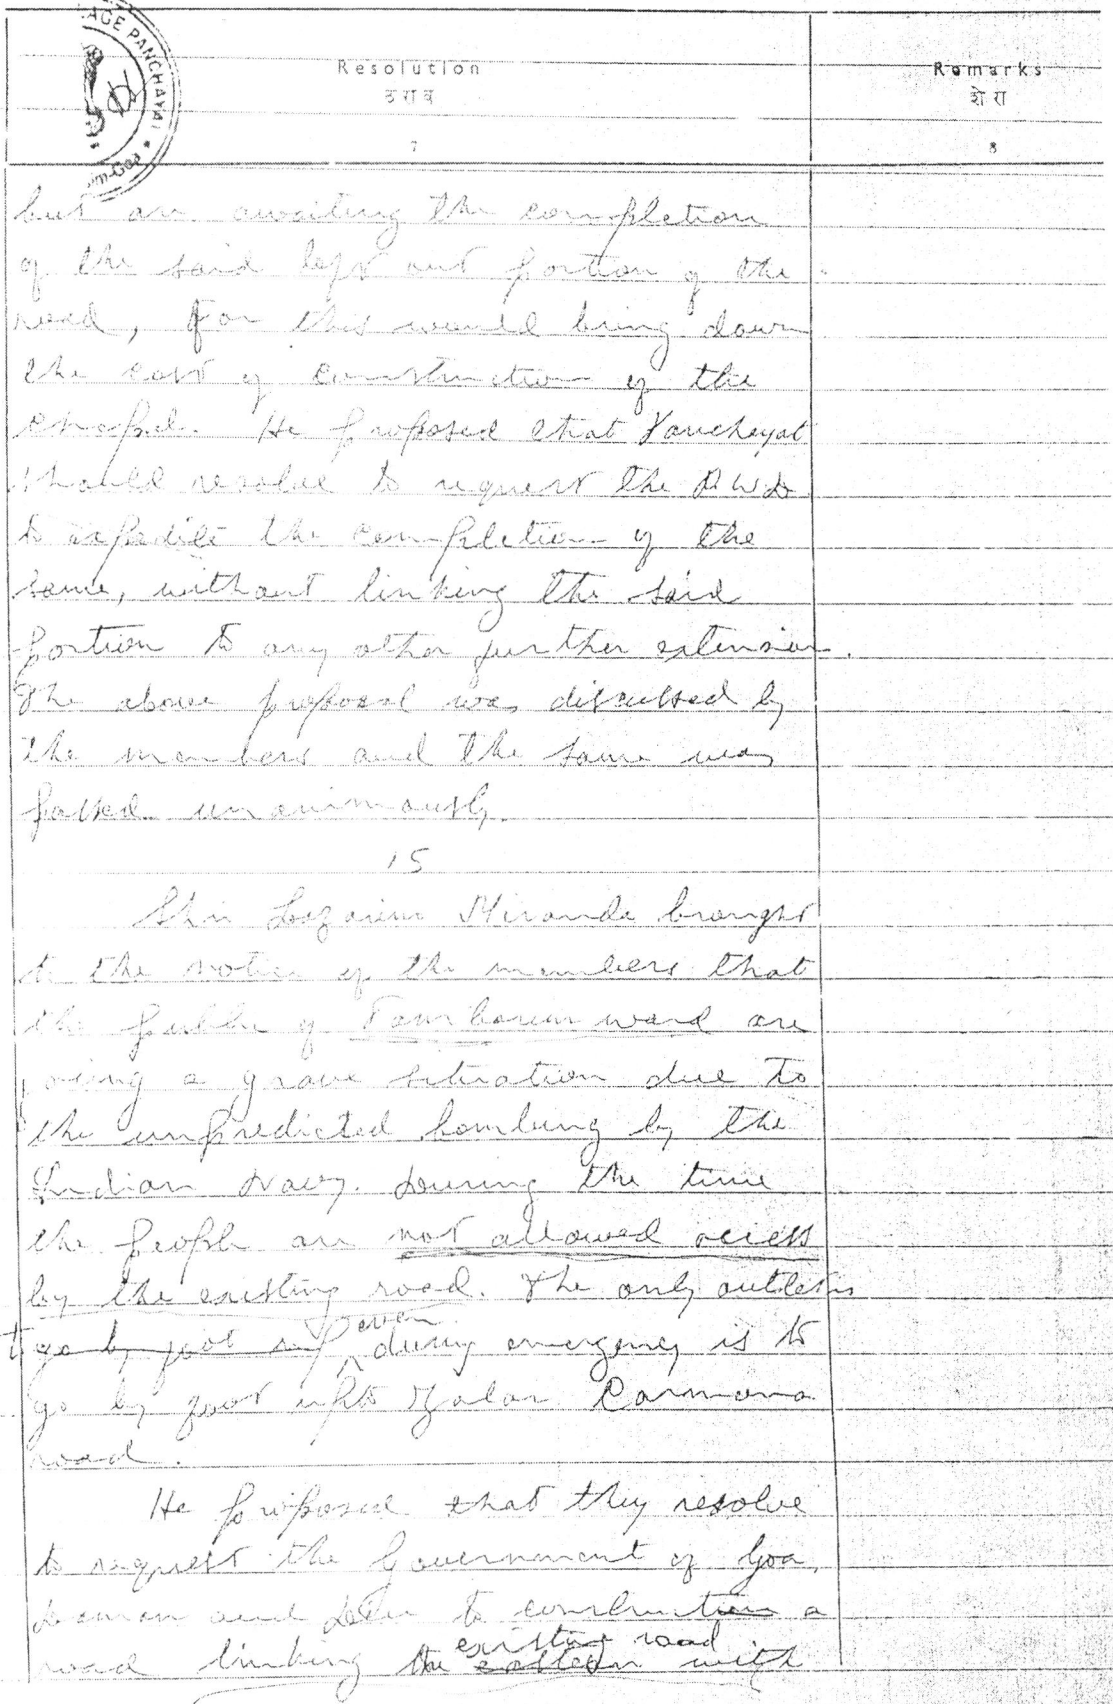 AGE PANCHAYAT
Resolution
Remarks
ठराव
शेरा
7
8
but are awaiting the completion
of the said left out portion of the
road, for this would bring down
the cost of construction of the
chapel. He proposed that Panchayat
should resolve to request the P.W.D.
to expedite the completion of the
same, without linking the said
portion to any other further extension.
The above proposal was discussed by
the members and the same was
passed unanimously.
15
Shri Miranda brought
to the notice of the members that
the public of ward are
facing a grave situation due to
the unpredicted bombing by the
Indian Navy. During the time
the people are not allowed access
by the existing road. The only outlet is
even
to go by foot during emergency is to
go by foot upto Carmona
road.
He proposed that they resolve
to request the Government of Goa,
Daman and Diu to construction a
existing road
road linking the with